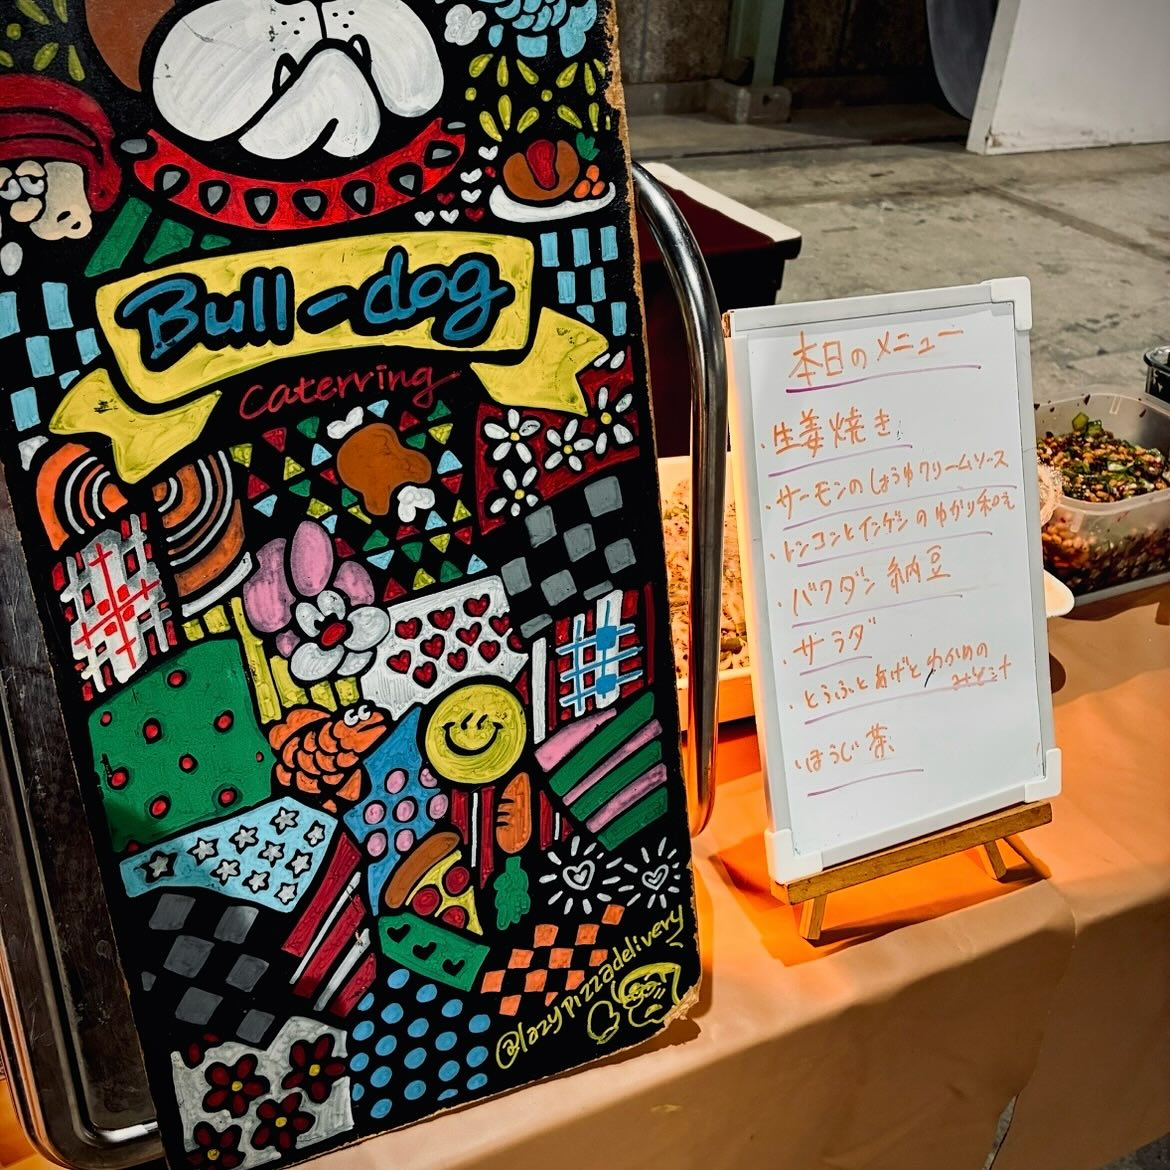 Bull-dog
Caterring
@lazypizzadelivery
本日のメニュー
・生姜焼き
・サーモンのしょうゆクリームソース
・レンコンとインゲンのゆかり和え
・バクダン納豆
・サラダ
・とうふとあげとわかめの
みそ汁
・ほうじ茶